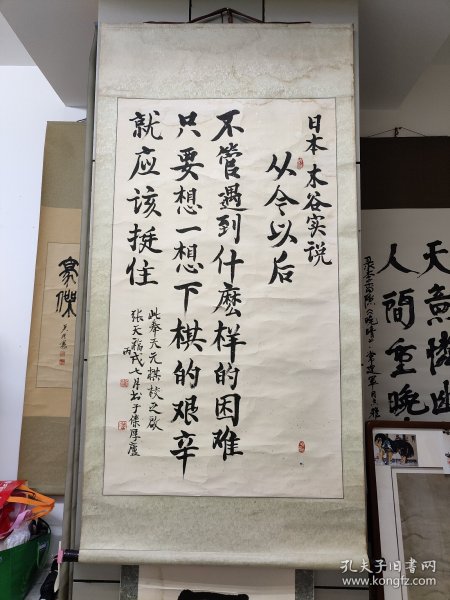 日本 木谷实说
从今以后
不管遇到什麽样的困难
只要想一想下棋的艰辛
就应该挺住
此奉天元棋校之启
张天福 丙戌七月书于儏厚庐
天意怜幽
人间重晚
豪杰
孔夫子旧书网
www.kongfz.com